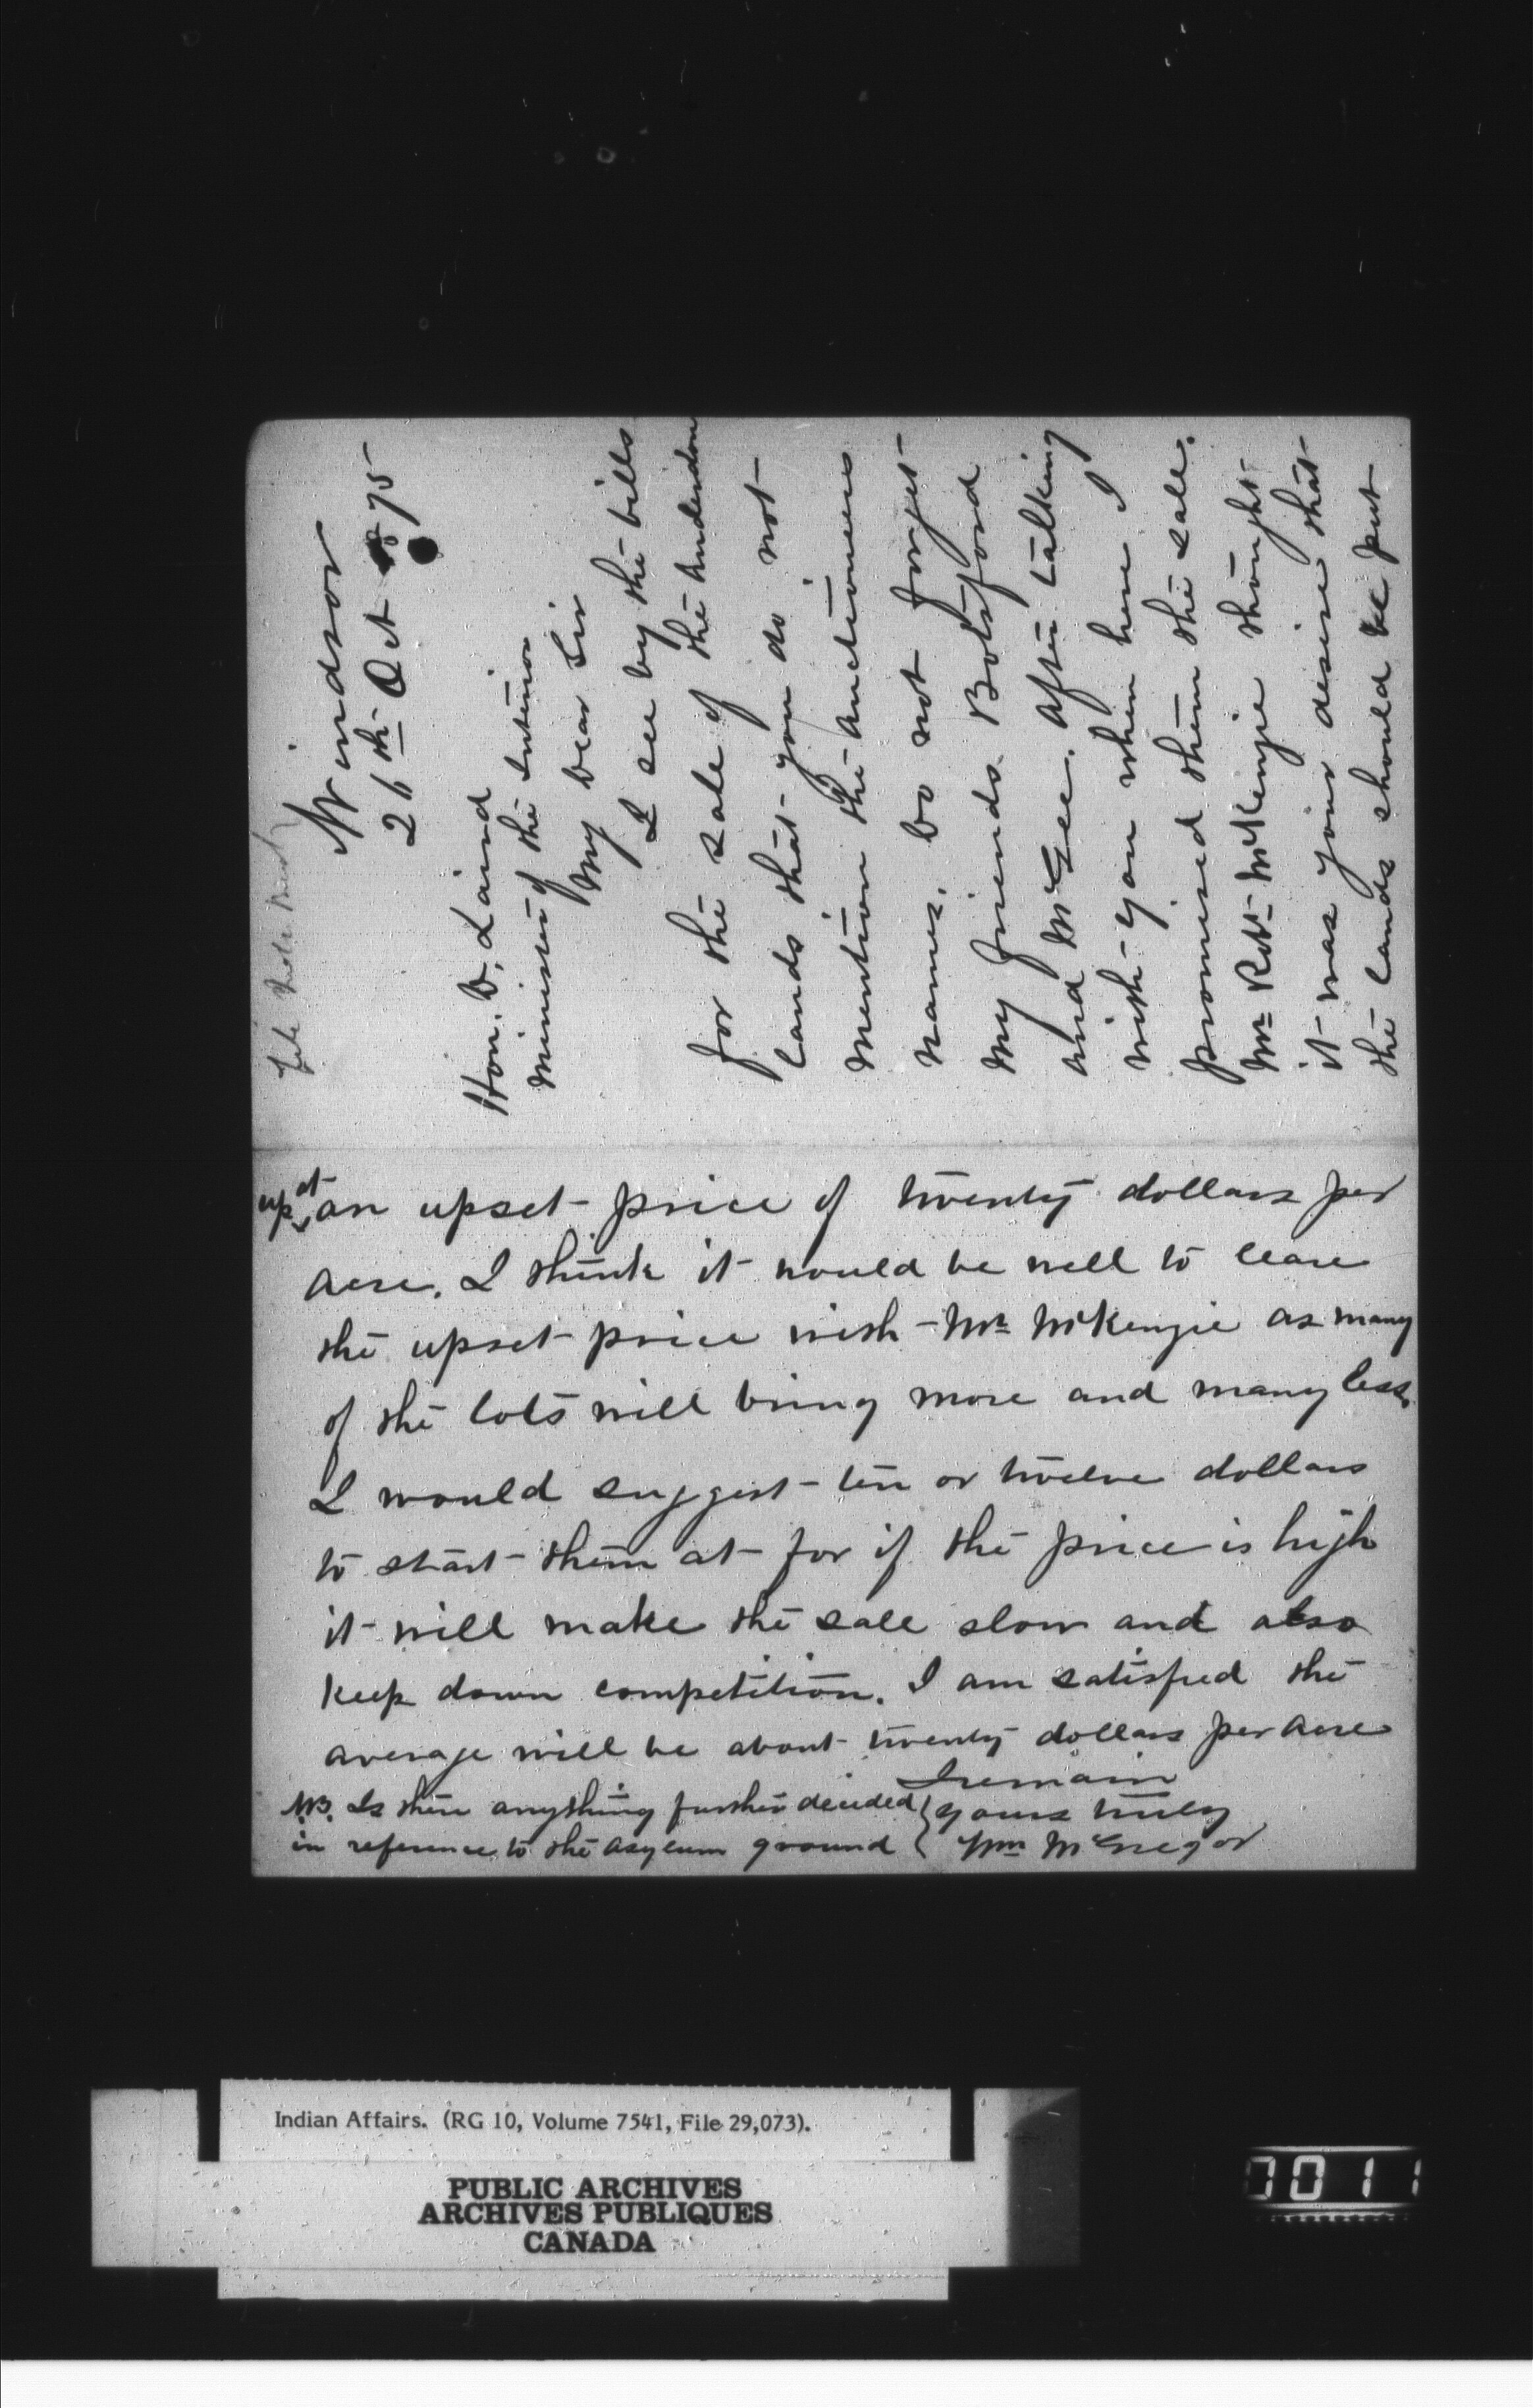 Windsor
26th Oct 1875
Hon. D. Laird
Minister of the Interior
My Dear Sir
I see by the bills
for the sale of the Anderdon
lands that you do not
mention the Auctioneers
names. Do not forget
my friends Botsford
and McGee. After talking
with you when here I
promised them the sale.
Mr Robt McKenzie thought
it was your desire that
the lands should be put
up at an upset price of twenty dollars per
acre. I think it would be well to leave
the upset price with Mr McKenzie as many
of the lots will bring more and many less
I would suggest ten or twelve dollars
to start them at for if the price is high
it will make the sale slow and also
keep down competition. I am satisfied the
average will be about twenty dollars per acre
I remain
yours truly
Wm McGregor
NB. Is there anything further decided
in reference to the Asylum ground
Indian Affairs. (RG 10, Volume 7541, File 29,073).
PUBLIC ARCHIVES
ARCHIVES PUBLIQUES
CANADA
0011